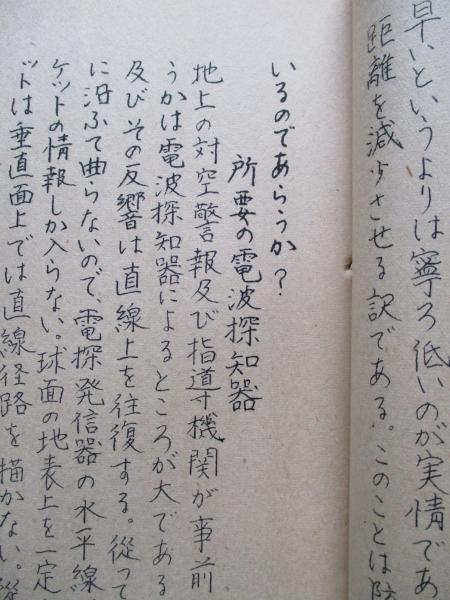 早いというよりは寧ろ低いのが実情であ
距離を減少させる訳である。このことは防
いるのであらうか?
所要の電波探知器
地上の対空警報及び指導機関が事前
うかは電波探知器によるところが大である
及びその反響は直線上を往復する。従って
に沿ふて曲らないので、電探発信器の水平線
ケットの情報しか入らない。球面の地表上を一定
ットは垂直面上では直線径路を描かない。従